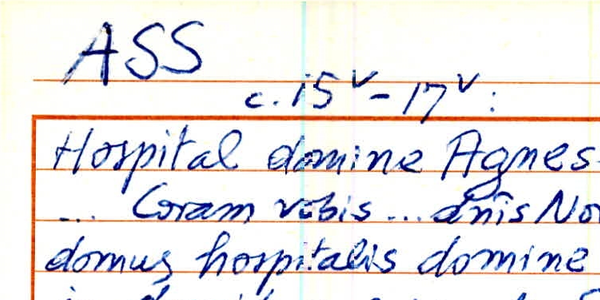 ASS
c. 15v - 17v:
Hospital domine Agnes
... Coram vobis ... dnis No
domus hospitalis domine